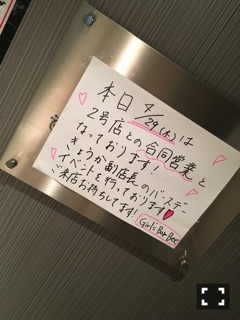 本日 4/29(木)は
2号店との合同営業と
なっております!
きょうか副店長のバースデー
イベントを行っております♥
ご来店お待ちしてます!
Girl's Bar Bee